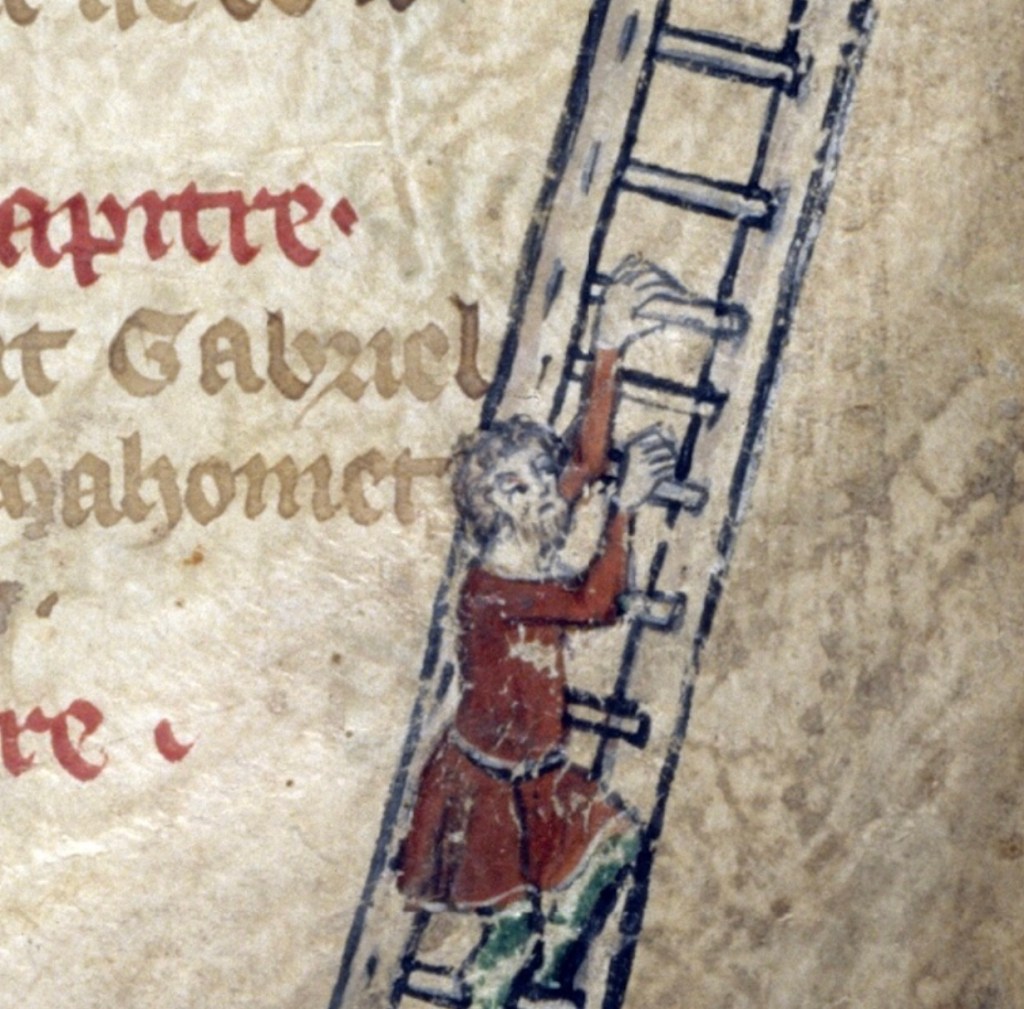 apitre·
nt Gabriel
mahomet
re ·